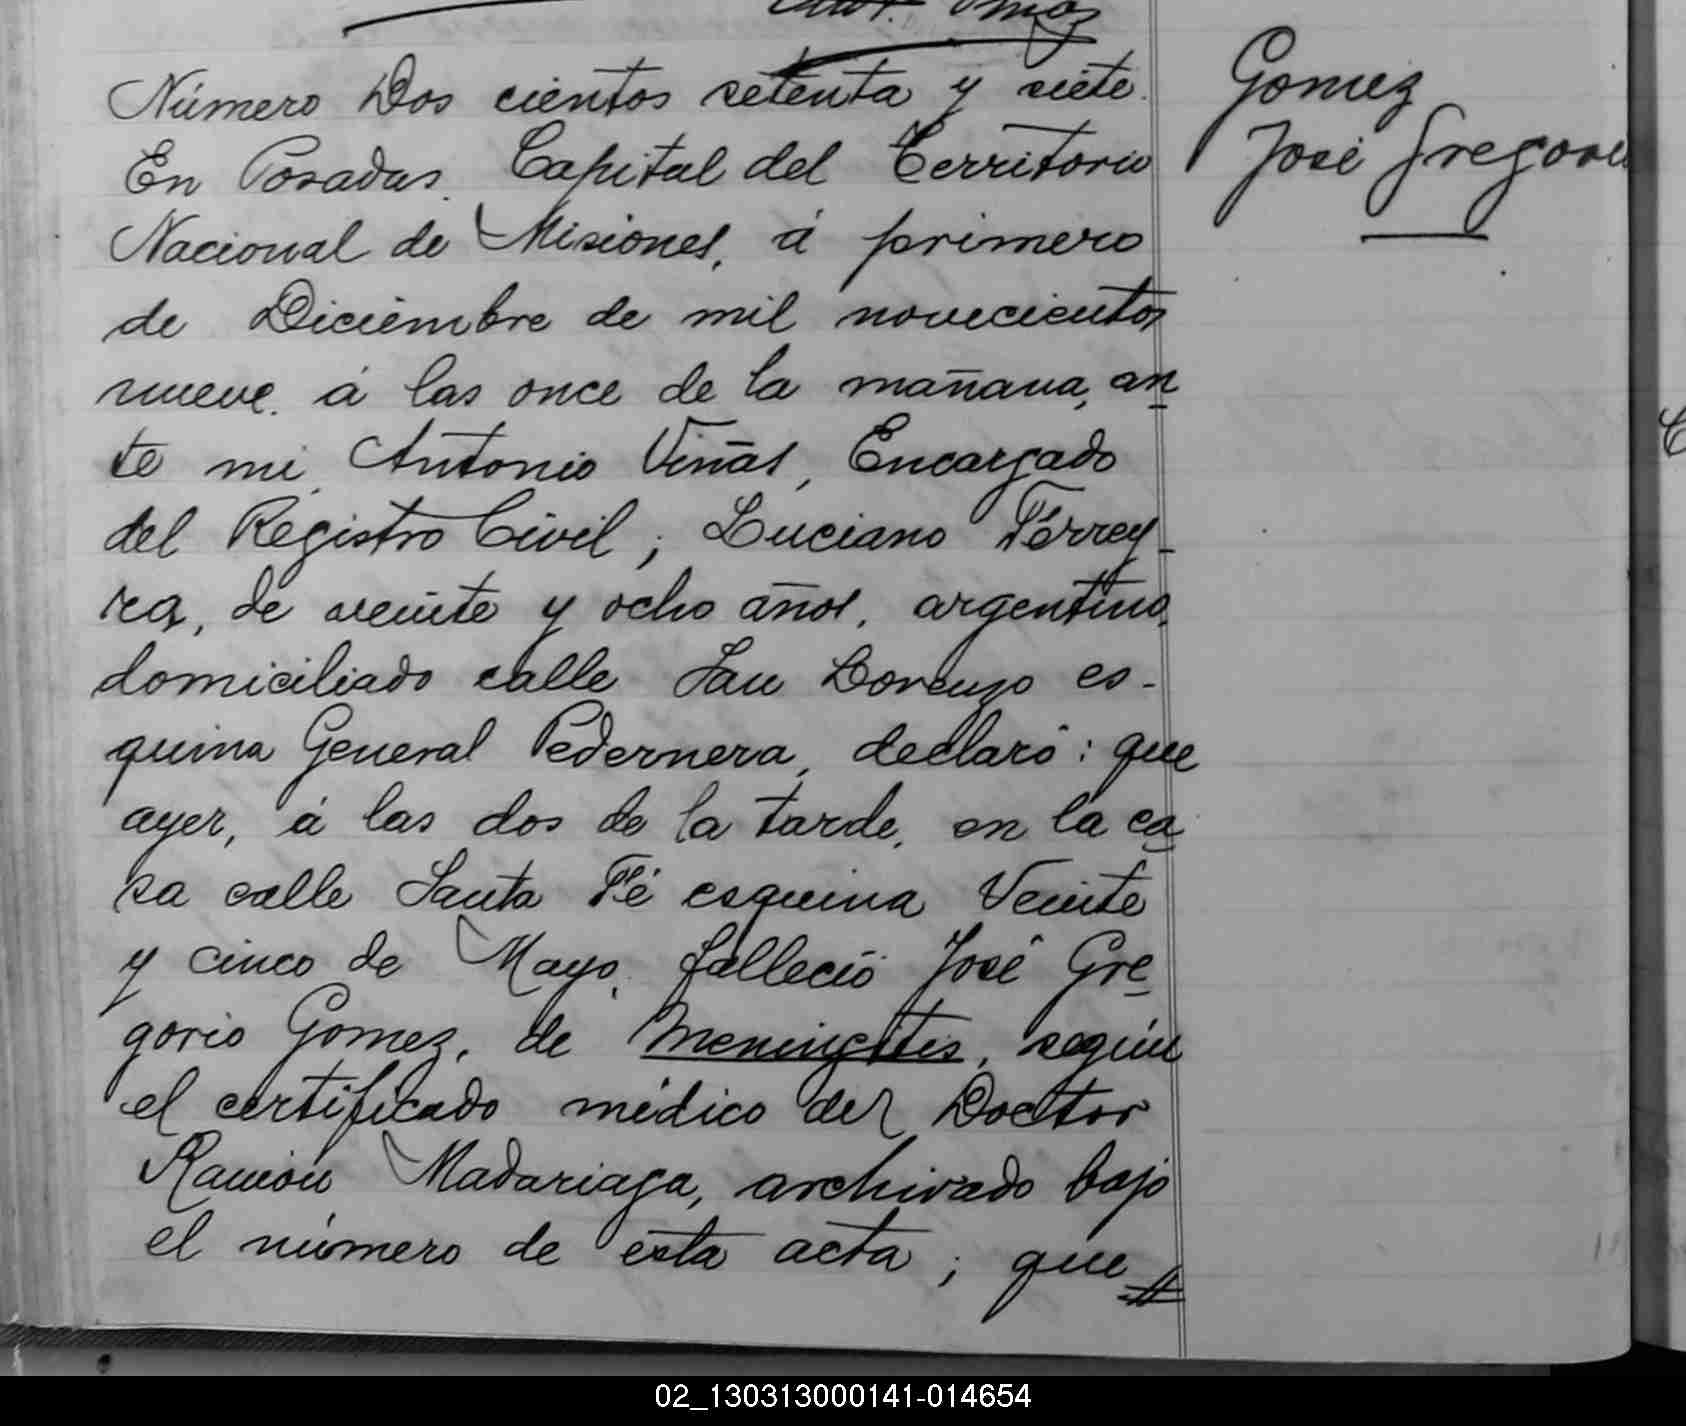 Número Dos cientos setenta y siete.
En Posadas, Capital del Territorio
Nacional de Misiones, á primero
de Diciembre de mil novecientos
nueve, á las once de la mañana, an
te mi, Antonio Viñas, Encargado
del Registro Civil; Luciano Ferrey-
ra, de veinte y ocho años, argentino,
domiciliado calle San Lorenzo es-
quina General Pedernera, declaró: que
ayer, á las dos de la tarde, en la ca
sa calle Santa Fé esquina Veinte
y cinco de Mayo, falleció José Gre
gorio Gomez, de Meningitis, según
el certificado médico del Doctor
Ramón Madariaga, archivado bajo
el número de esta acta; que
Gomez
José Gregorio
02_130313000141-014654